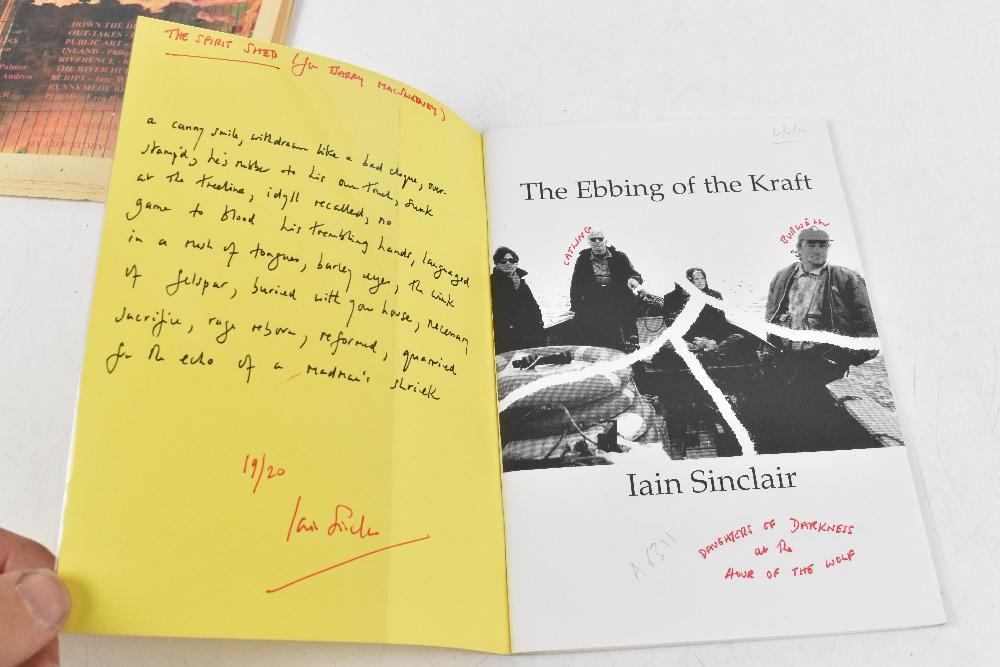 DOWN THE
OUT-TAKES -
PUBLIC ART -
INLAND - Philip
RIVERENCE - K
Palmer THE RIVER HU
Andrew SCRIPT - Jane W
RUNNYMEDE
THE SPIRIT SHED (for BARRY MACSWEENEY)
a canny smile, withdrawn like a bad cheque, over-
stamp'd, he's rubber to his own touch, sunk
at the treeline, idyll recalled, no
game to blood his trembling hands, languaged
in a rush of tongues, barley eyes, the wink
of felspar, buried with your house, necessary
sacrifice, rage reborn, reformed, quarried
for the echo of a madman's shriek
19/20
Iain Sinclair
The Ebbing of the Kraft
CATLING
BURWELL
Iain Sinclair
DAUGHTERS OF DARKNESS
at the
HOUR OF THE WOLF